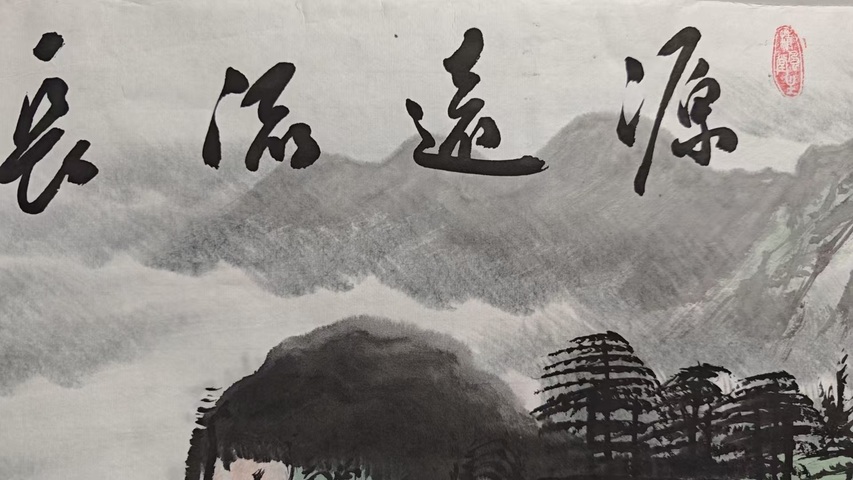 源遠流長